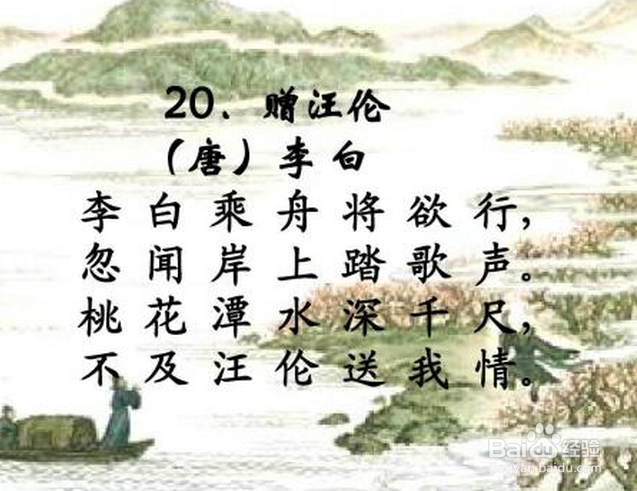 20. 赠汪伦
（唐）李白
李白乘舟将欲行，
忽闻岸上踏歌声。
桃花潭水深千尺，
不及汪伦送我情。
Baidu经验
jingyan.baidu.com